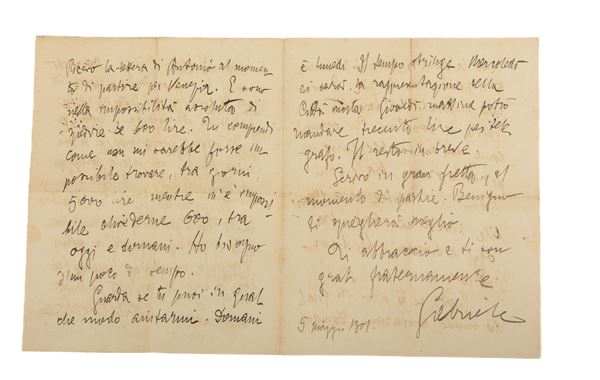 Ricevo la lettera di Antonio al momen-
to di partire per Venezia. E sono
nella impossibilità assoluta di
spedire le 600 lire. Tu comprendi
come non mi sarebbe forse im
possibile trovare, tra giorni,
5000 lire mentre m'è impossi
bile chiederne 600, tra
oggi e domani. Ho bisogno
d'un poco di tempo.
Guarda se tu puoi in qual
che modo aiutarmi. Domani
è lunedì. Il tempo stringe. Mercoledì
ci sarà la rappresentazione della
Città morta. Giovedì mattina potrò
mandare trecento lire per tele
grafo. Il resto in breve.
Scrivo in gran fretta, al
momento di partire. Benigno
ti spiegherà meglio.
Ti abbraccio e ti son
grat fraternamente.
Gabriele
5 maggio 1901.